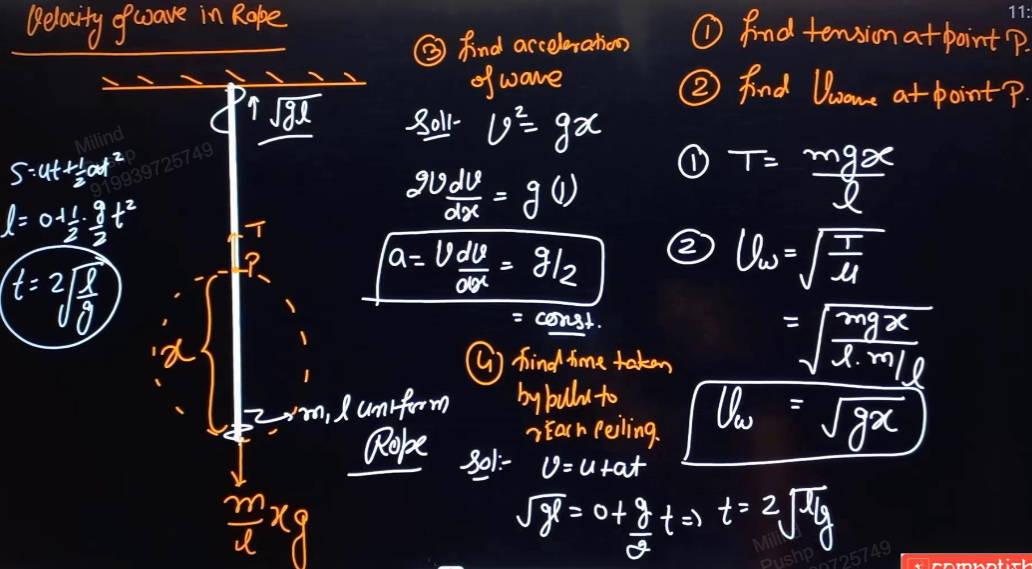 Velocity of wave in Rope
↑ √gl
Milind
Pushp
919939725749
S = ut + 1/2 at²
l = 0 + 1/2 · g/2 t²
t = 2√(l/g)
T
P
x
→ m, l uniform
Rope
m/l xg
③ find acceleration
of wave
Sol:- v² = gx
2v dv/dx = g(1)
a = v dv/dx = g/2
= const.
④ find time taken
by pulse to
reach ceiling.
Sol:- v = u + at
√gl = 0 + g/2 t ⇒ t = 2√(l/g)
11:
① find tension at point P.
② find Vwave at point P.
① T = mgx/l
② Vw = √(T/μ)
= √(mgx/(l.m/l))
Vw = √gx
Milind
Pushp